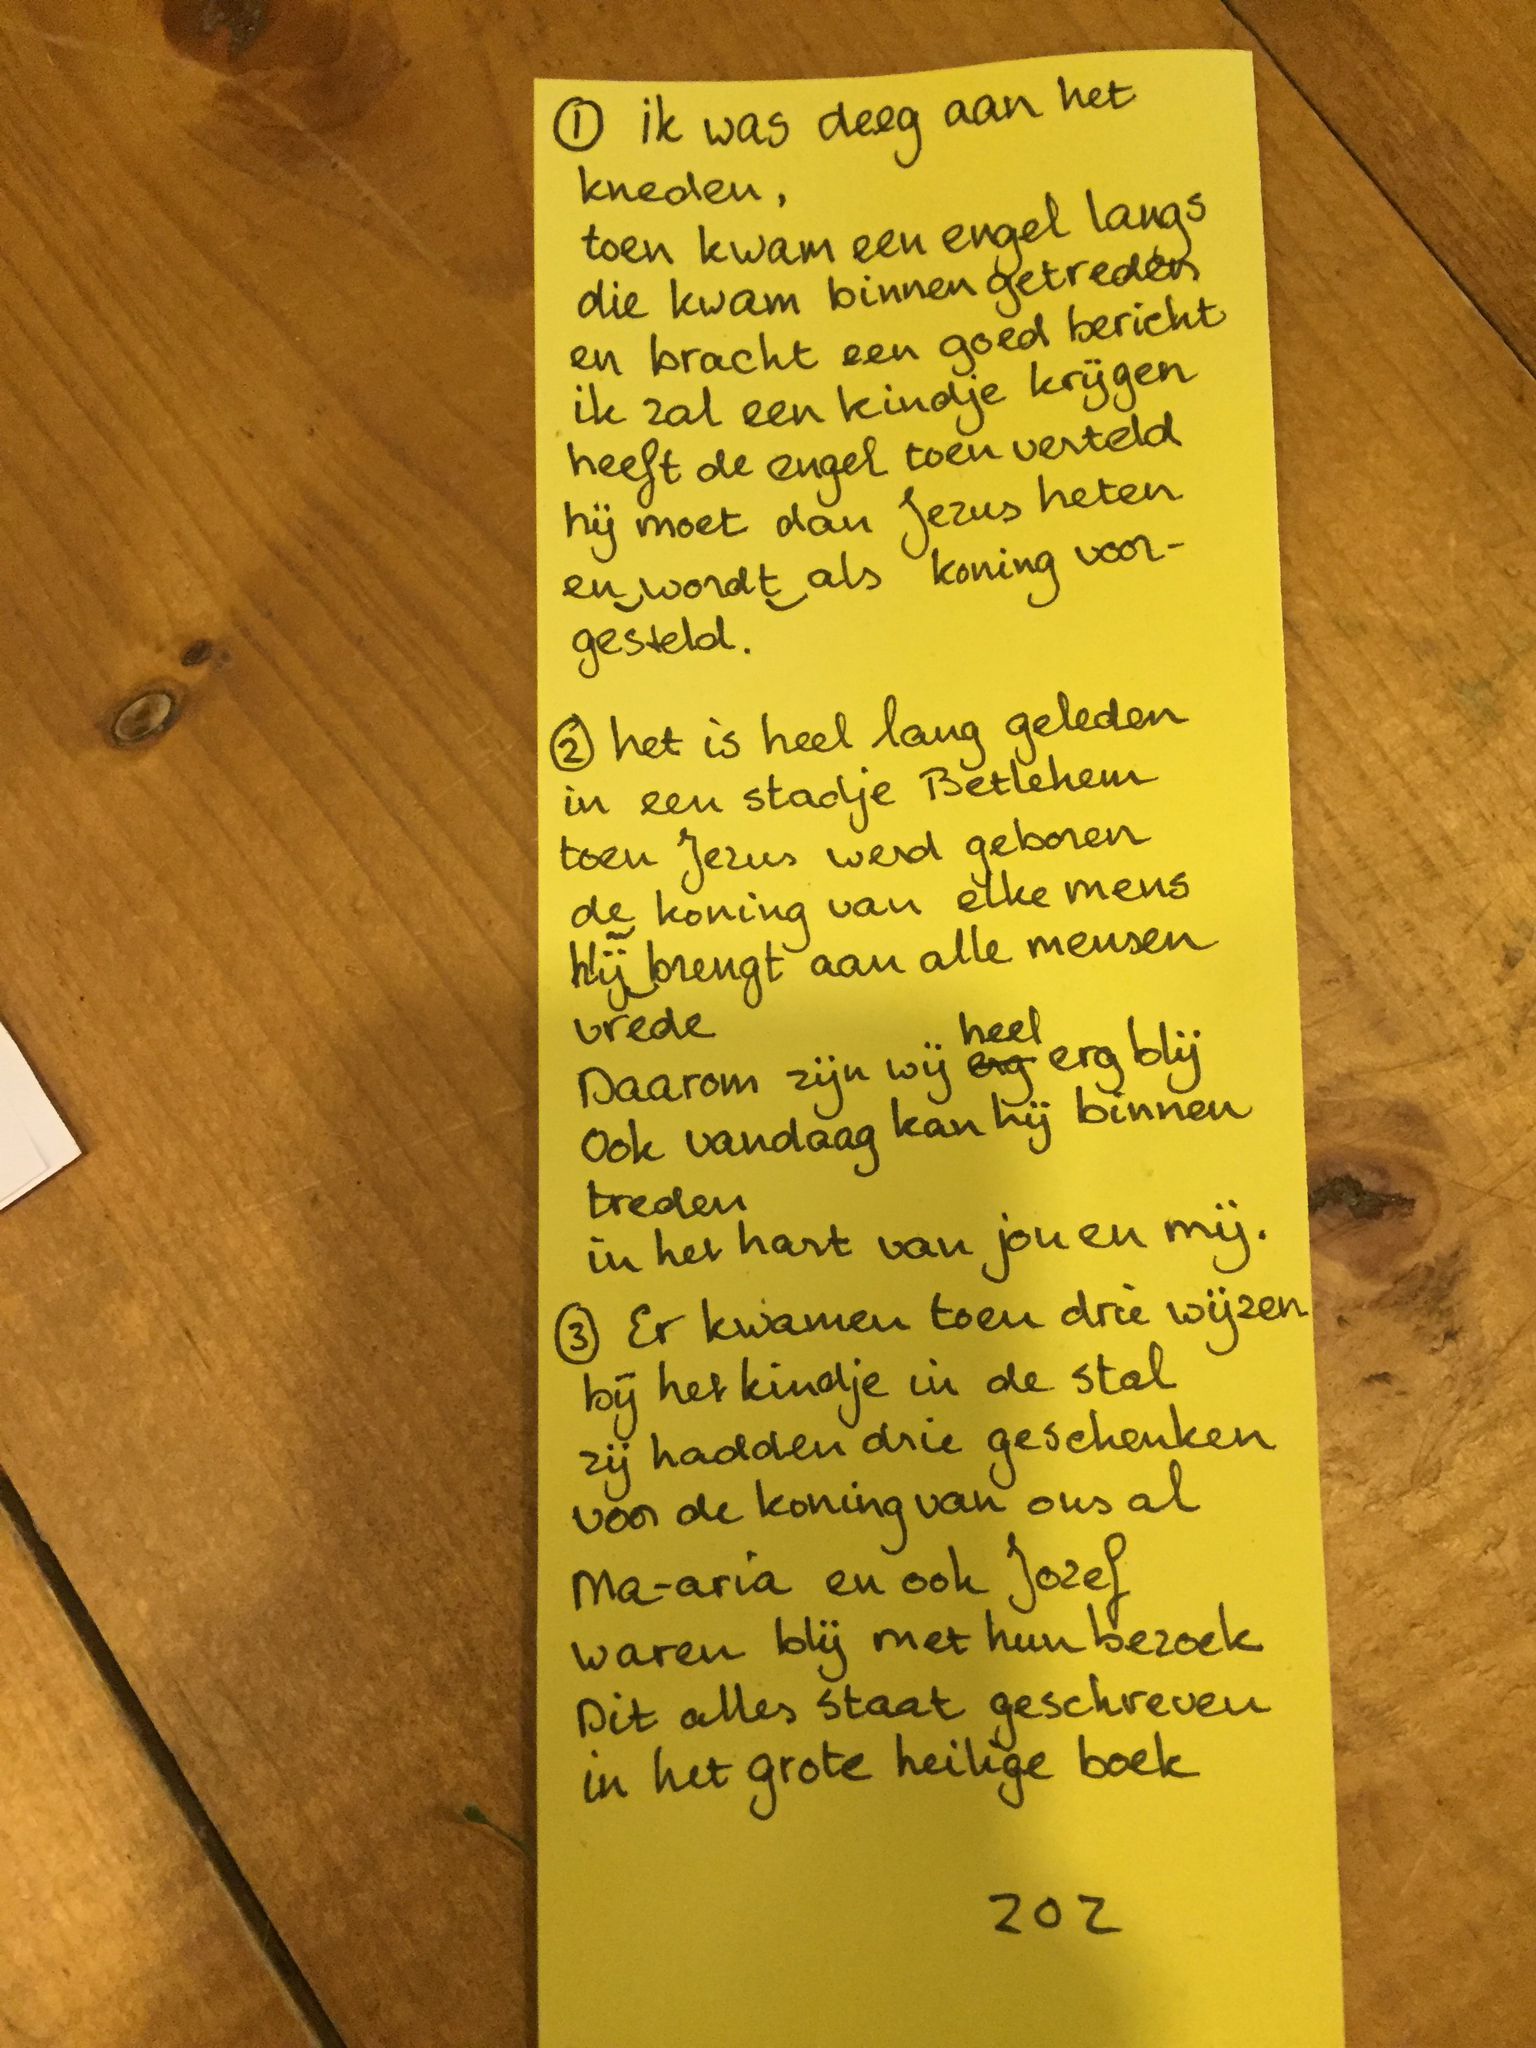 ① ik was deeg aan het
kneden,
toen kwam een engel langs
die kwam binnen getreden
en bracht een goed bericht
ik zal een kindje krijgen
heeft de engel toen verteld
hij moet dan Jezus heten
en wordt als koning voor-
gesteld.
② het is heel lang geleden
in een stadje Betlehem
toen Jezus werd geboren
de koning van elke mens
hij brengt aan alle mensen
vrede
heel
Daarom zijn wij erg erg blij
Ook vandaag kan hij binnen
treden
in het hart van jou en mij.
③ Er kwamen toen drie wijzen
bij het kindje in de stal
zij hadden drie geschenken
voor de koning van ons al
Ma-aria en ook Jozef
waren blij met hun bezoek
Dit alles staat geschreven
in het grote heilige boek
202